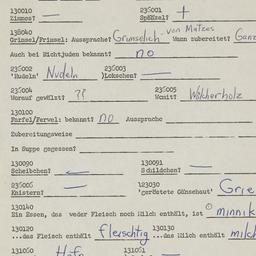 130010 236001
Zimmes? — Spätzel? +
138040
Grimsel/Frimsel: Aussprache? Grimselich von Matzes Wann zubereitet? Ganz
Auch bei Nichtjuden bekannt? no
236002 236003
'Nudeln' Nudeln )Lokschen? —
236004 236005
Worauf gewälzt? ?? Womit? Wälcherholz
130100
Farfel/Fervel: bekannt? no Aussprache
Zubereitungsweise
In Suppe gegessen?
130090 130091
Scheibchen? — Schildchen? —
236006 123030
Knistern? — 'geröstete Gänsehaut' Grie
130140
Ein Essen, das weder Fleisch noch Milch enthält, ist minnik
130120 130130
...das Fleisch enthält fleischtig ...das Milch enthält milch
131050 131051